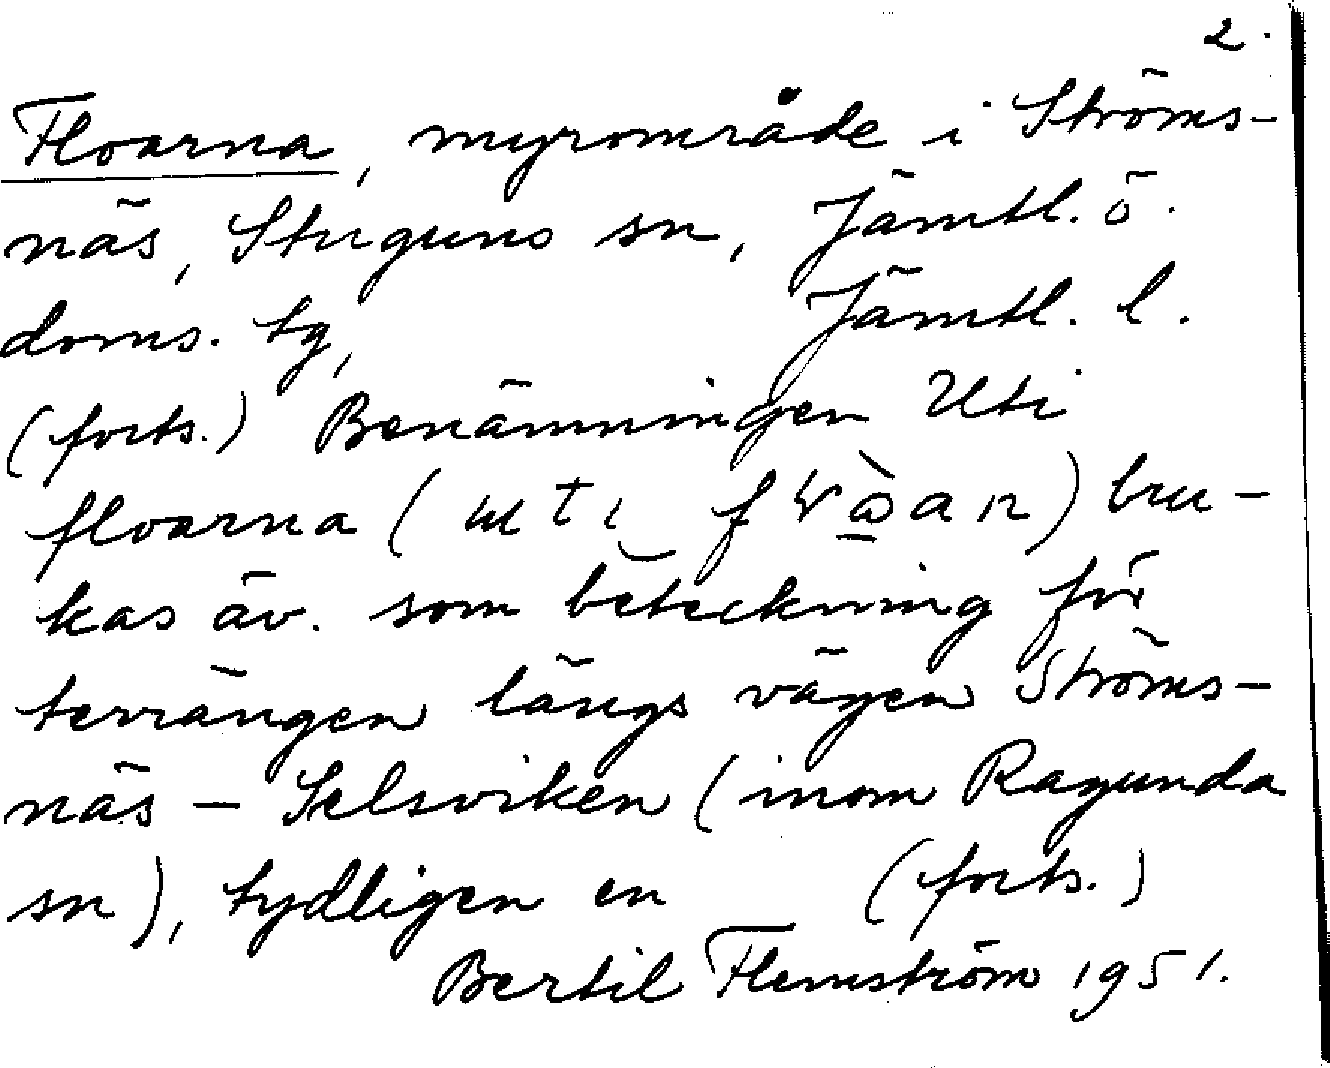 2.
Floarna, myrområde i Ströms-
näs, Stuguns sn, Jämtl. ö.
doms. tg, Jämtl. l.
(forts.) Benämningen Uti
floarna (uti fɽòan) bru-
kas äv. som beteckning för
terrängen längs vägen Ströms-
näs – Selsviken (inom Ragunda
sn), tydligen en (forts.)
Bertil Flemström 1951.